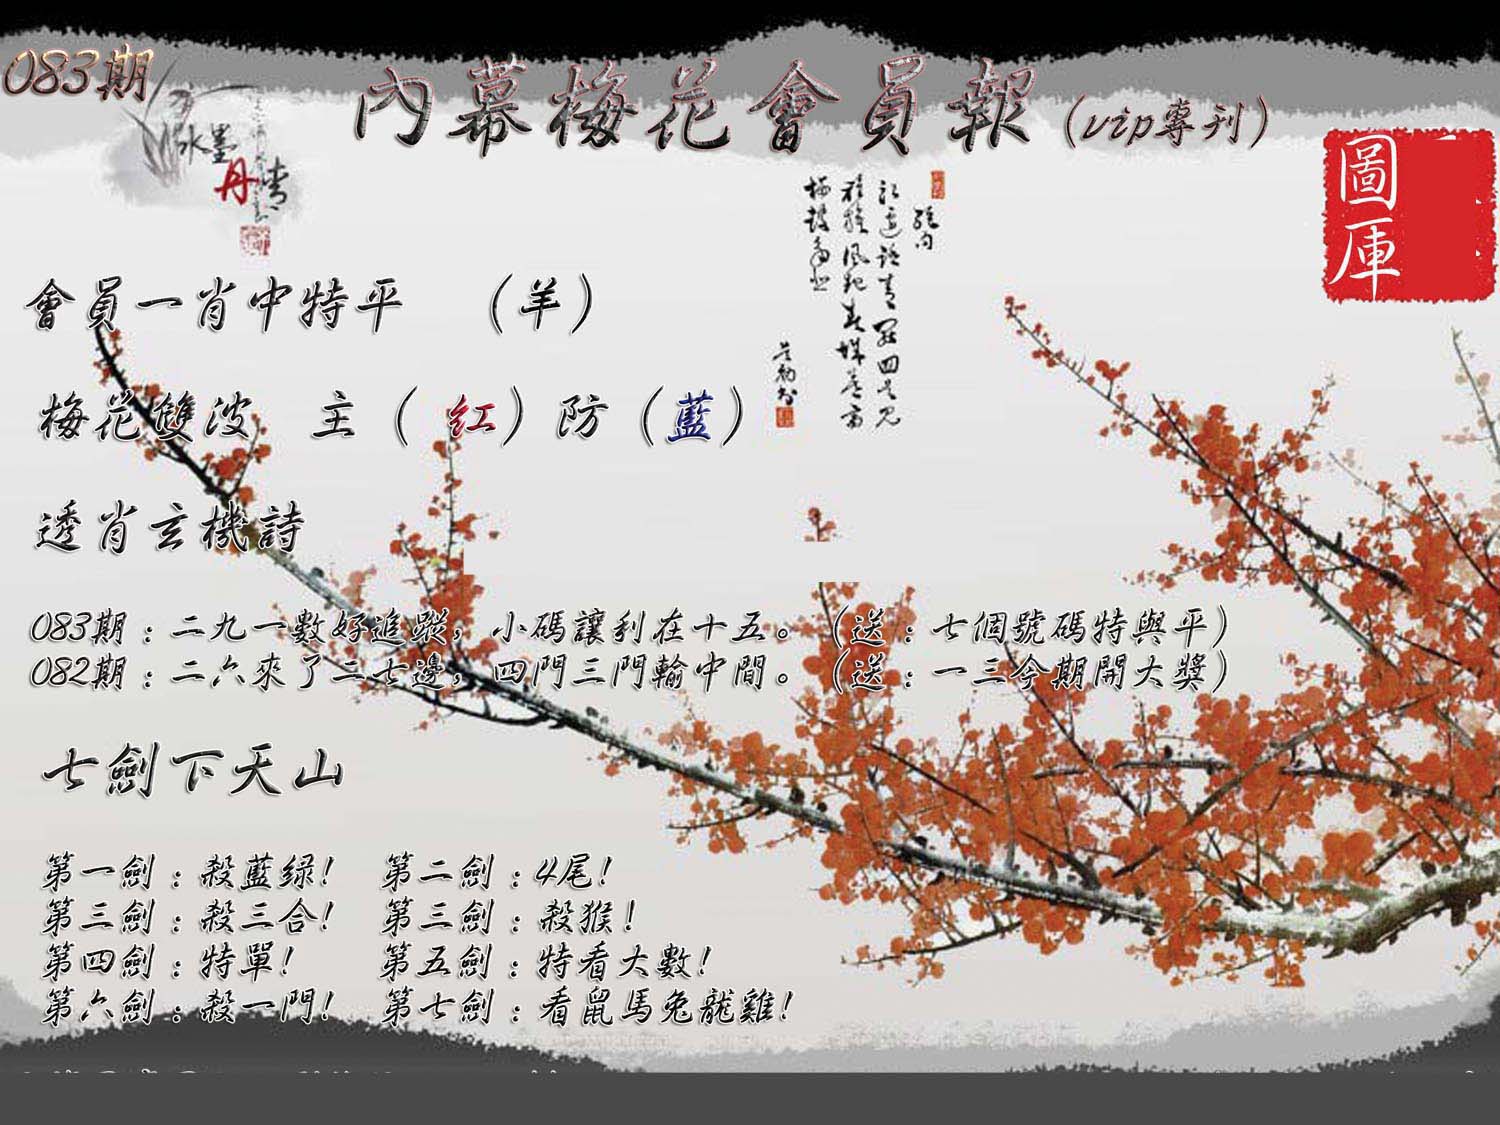 083期
內幕梅花會員報(vip專刊)
水墨
丹青
圖庫
會員一肖中特平 (羊)
梅花雙波 主(紅)防(藍)
透肖玄機詩
083期:二九一數好追蹤,小碼讓利在十五。(送:七個號碼特與平)
082期:二六來了二七邊,四門三門輸中間。(送:一三今期開大獎)
七劍下天山
第一劍:殺藍绿! 第二劍:4尾!
第三劍:殺三合! 第三劍:殺猴!
第四劍:特單! 第五劍:特看大數!
第六劍:殺一門! 第七劍:看鼠馬兔龍雞!